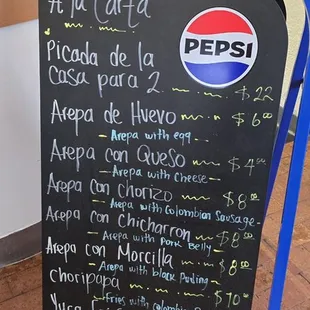 A la Carta
PEPSI
Picada de la
Casa para 2 $22
Arepa de Huevo $6⁰⁰
Arepa with egg
Arepa con Queso $4⁰⁰
Arepa with Cheese
Arepa con Chorizo $8⁰⁰
Arepa with Colombian Sausage
Arepa con Chicharron $8⁵⁰
Arepa with Pork Belly
Arepa con Morcilla $8⁵⁰
Arepa with black Pudding
Choripapa $10⁰⁰
Fries with
Yuca